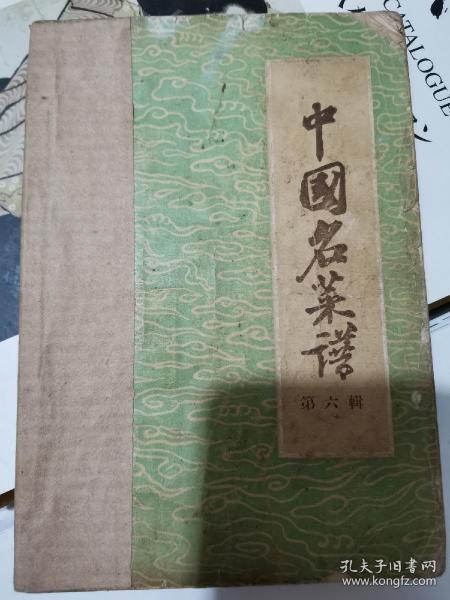 中國名菜譜
第六輯
C CATALOGUE
孔夫子旧书网
www.kongfz.com